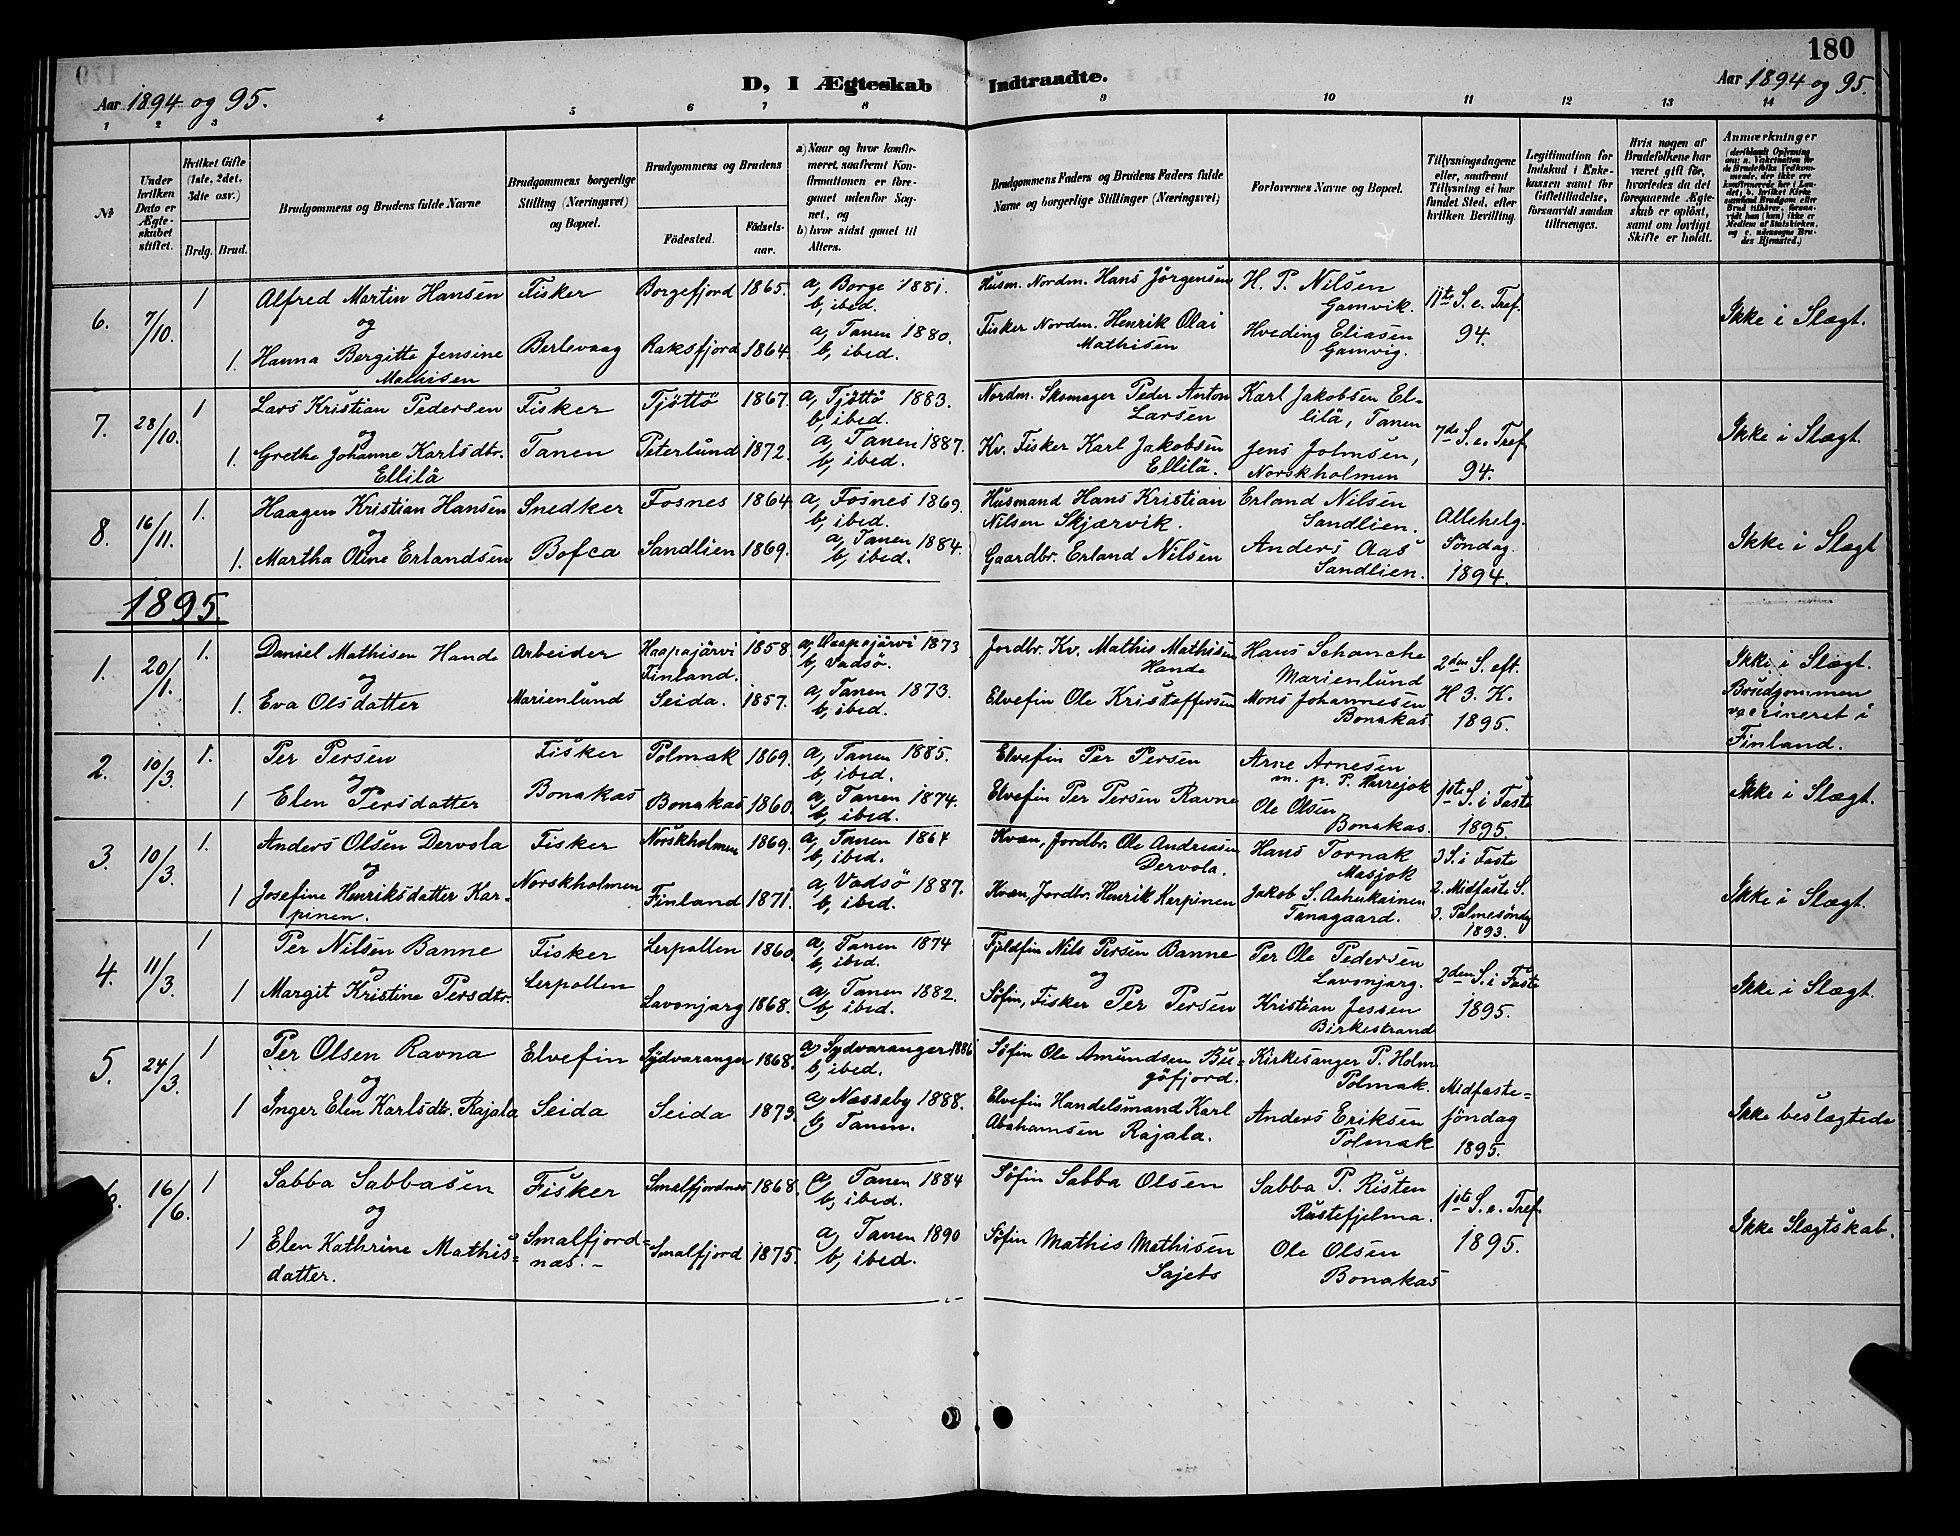 180
D, I Ægteskab Indtraadte.
Aar 1894 og 95.
Aar 1894 og 95.
1 2 3 4 5 6 7 8 9 10 11 12 13 14
№
Under hvilken Dato er Ægteskabet stiftet.
Hvilket Gifte (1ste, 2det, 3die osv.)
Brdg. Brud.
Brudgommens og Brudens fulde Navne
Brudgommens borgerlige Stilling (Næringsvei) og Bopæl.
Brudgommens og Brudens
Födested.
Födsels-aar.
a) Naar og hvor konfirmeret, saafremt Konfirmationen er foregaaet udenfor Sognet, og
b) hvor sidst gaaet til Alters.
Brudgommens Faders og Brudens Faders fulde Navne og borgerlige Stillinger (Næringsvei)
Forlovernes Navne og Bopæl.
Tillysningsdagene eller, saafremt Tillysning ei har fundet Sted, efter hvilken Bevilling.
Legitimation for Indskud i Enkekassen samt for Giftetilladelse, forsaavidt saadan tiltrænges.
Hvis nogen af Brudefolkene har været gift för, hvorledes da det foregaaende Ægteskab er oplöst, samt om lovligt Skifte er holdt.
Anmærkninger
(deriblandt Oplysning om: a. Vakcination for de Brudefolks Vedkommende, der ikke ere konfirmerede her i Landet, b. hvilket Kirkesamfund Brudgom eller Brud tilhörer, forsaavidt han (hun) ikke er Medlem af Statskirken, og c. udensogns Brudes Hjemsted.)
6. 7/10. 1 Alfred Martin Hansen Fisker Borgefjord 1865. a, Borge 1881. Husm. Nordm. Hans Jörgensen H. P. Nilsen 11te S. e. Tref. Ikke i Slægt.
og b, ibed. Gamvik.
1. Hanna Bergitte Jensine Berlevaag Raksfjord 1864. a, Tanen 1880. Fisker Nordm. Henrik Olai Hveding Eliasen 94.
Mathisen b, ibed. Mathisen Gamvig.
7. 28/10. 1 Lars Kristian Pedersen Fisker Tjöttö 1867. a, Tjöttö 1883. Nordm. Skomager Peder Anton Karl Jakobsen El- 7de S. e. Tref Ikke i Slægt.
og b, ibed. Larsen lilä, Tanen
1. Grethe Johanne Karlsdtr. Tanen Peterlund 1872. a, Tanen 1887. Kv. Fisker Karl Jakobsen Jens Johnsen, 94.
Ellilä b, ibed. Ellilä. Norskholmen
8. 16/11. 1. Haagen Kristian Hansen Snedker Fosnes 1864 a, Fosnes 1869. Husmand Hans Kristian Erland Nilsen Allehelg. Ikke i Slægt
og b, ibed. Nilsen Skjærvik. Sandlien.
1. Martha Oline Erlandsen Bofca Sandlien 1869. a, Tanen 1884. Gaardbr. Erland Nilsen Anders Aas Söndag.
b, ibed. Sandlien. 1894.
1895.
1. 20/1. 1. Daniel Mathisen Hande Arbeider Haapajärvi 1858. a, Haapajärvi 1873 Jordbr. Kv. Mathis Mathisen Hans Schanche 2den S. eft. Ikke i Slægt.
og Finland. b, Vadsö. Hande Marienlund H 3. K. Brudgommen
1. Eva Olsdatter Marienlund Seida. 1857. a, Tanen 1873. Elvefin Ole Kristoffersen Mons Johannesen 1895. vaccineret i
b, ibed. Bonakas Finland.
2. 10/3. 1. Per Persen Fisker Polmak 1869. a, Tanen 1885. Elvefin Per Persen Arne Arnesen 1ste S. i Faste Ikke i Slægt.
og b, ibed. m. p. P. Harrejok
1 Elen Persdatter Bonakas Bonakas 1860. a, Tanen 1874. Elvefin Per Persen Ravne Ole Olsen 1895.
b, ibed. Bonakas.
3. 10/3. 1. Anders Olsen Dervola Fisker Norskholmen 1869. a, Tanen 1864 Kvæn, Jordbr. Ole Andreasen Hans Tornak 3 S. i Faste Ikke i Slægt.
og b, ibed. Dervola. Masjok
1 Josefine Henriksdatter Kar- Norskholmen Finland 1871. a, Vadsö 1887. Kvæn, Jordbr. Henrik Karpinen Jakob S. Aahukainen 2. Midfaste S.
pinen. b, ibed. Tanagaard. 3. Palmesöndg 1893.
4. 11/3. 1 Per Nilsen Banne Fisker Lerpollen 1860. a, Tanen 1874 Fjeldfin Nils Persen Banne Per Ole Pedersen 2den S. i Faste Ikke i Slægt.
og b, ibed. og Lavonjarg.
1 Margit Kristine Persdtr. Lerpollen Lavonjarg 1868. a, Tanen 1882. Söfin, Fisker Per Persen Kristian Jessen 1895.
b, ibed. Birkestrand
5. 24/3. 1 Per Olsen Ravna Elvefin Sydvaranger 1868. a, Sydvaranger 1886 Söfin Ole Amundsen Bu- Kirkesanger P. Holm Midfaste- Ikke beslægtede
og b, ibed. göfjord. Polmak.
1 Inger Elen Karlsdtr. Rajala Seida Seida 1873. a, Nesseby 1888. Elvefin Handelsmand Karl Anders Eriksen söndag
b, Tanen. Abrahamsen Rajala. Polmak 1895.
16/6. 1 Sabba Sabbasen Fisker Smalfjordnes 1868. a, Tanen 1884 Söfin Sabba Olsen Sabba P. Risten 1ste S. e. Tref. Ikke Slægtskab.
og b, ibed. Rustefjelma.
1 Elen Kathrine Mathis- Smalfjord- Smalfjord 1875. a, Tanen 1890 Söfin Mathis Mathisen Ole Olsen 1895.
datter. næs. b, ibed. Sajets Bonakas